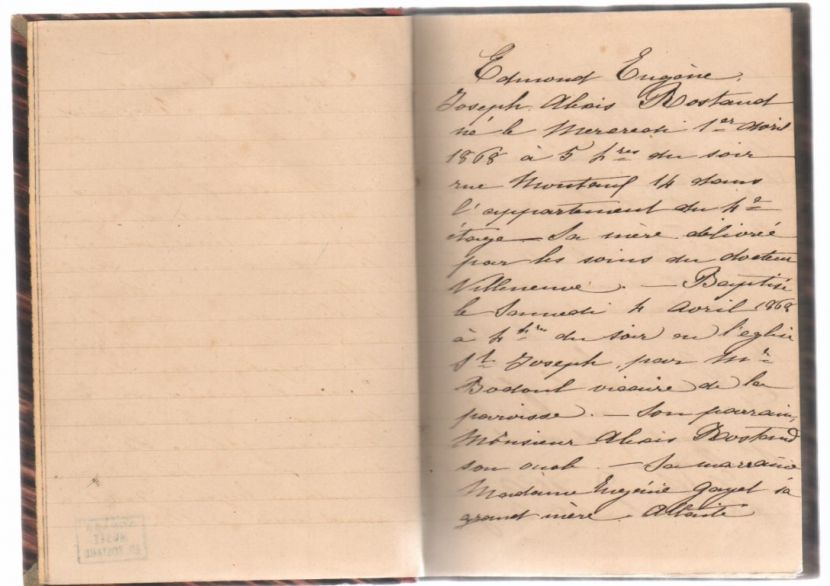 Edmond Eugène
Joseph Alexis Rostand
né le Mercredi 1er Avril
1868 à 5 hres du soir
rue Monteaux 14 dans
l'appartement du 4e
étage — Sa mère délivrée
par les soins du docteur
Villeneuve. — Baptisé
le Samedi 4 Avril 1868
à 4 hres du soir en l'église
St Joseph, par Mr
vicaire de la
paroisse. — Son parrain,
Monsieur Alexis Rostand
son oncle — Sa marraine
Madame Eugénie Gayet sa
grand mère.